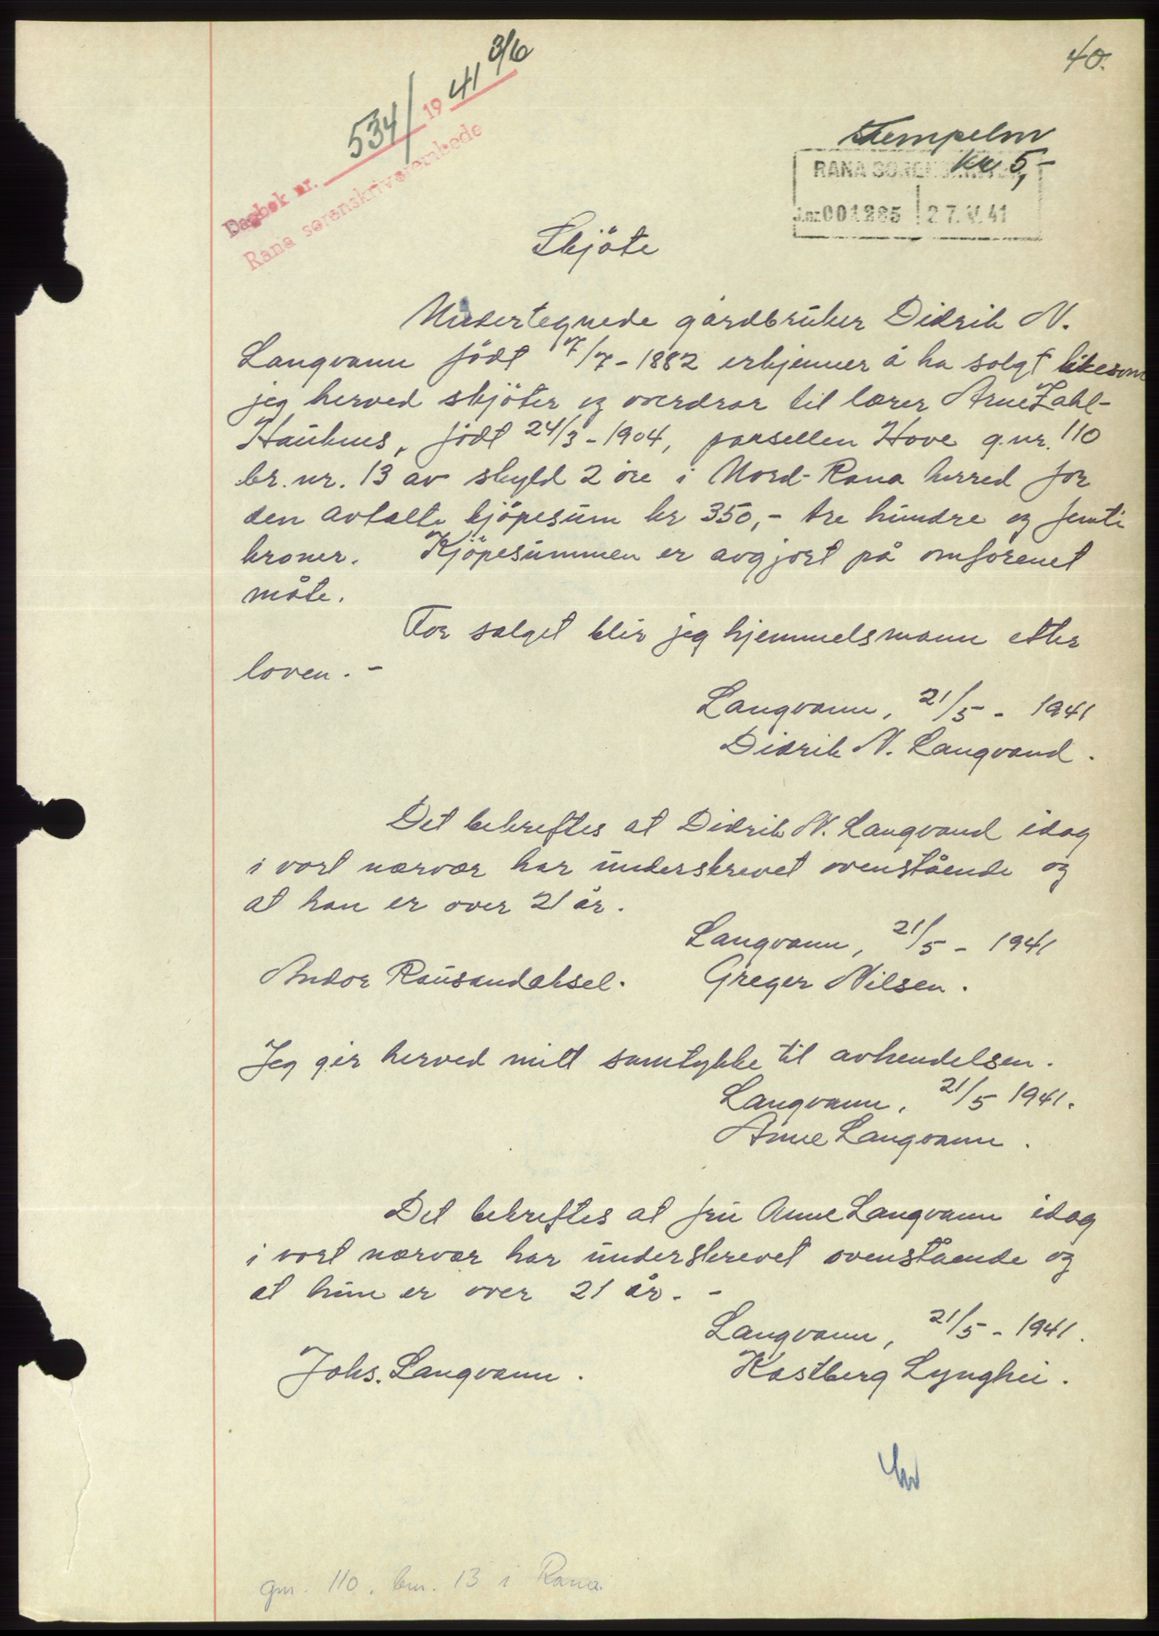 40.
534/1941 3/6
Dagbok nr.
Rana sorenskriverembede
Stempelm
kr 5,-
RANA SORENSKRIVER
J.nr. 001285 27.V.41
Skjöte
Undertegnede gårdbruker Didrik N.
Langvann född 7/7-1882 erkjenner å ha solgt likesom
jeg herved skjöter og overdrar til lærer Arne Zahl-
Hauknes, född 24/3-1904, parsellen Hove g.nr. 110
br.nr. 13 av skyld 2 öre i Nord-Rana herred for
den avtalte kjöpesum kr 350,- tre hundre og femti
kroner. Kjöpesummen er avgjort på omforenet
måte.
For salget blir jeg hjemmelsmann etter
loven.-
Langvann, 21/5- 1941
Didrik N. Langvand.
Det bekreftes at Didrik N. Langvand idag
i vort nærvær har underskrevet ovenstående og
at han er over 21 år.
Langvann, 21/5- 1941
Andor Rausandaksel. Greger Nilsen.
Jeg gir herved mitt samtykke til avhendelsen.
Langvann, 21/5 1941.
Anne Langvann.
Det bekreftes at fru Anne Langvann idag
i vort nærvær har underskrevet ovenstående og
at hun er over 21 år.-
Langvann, 21/5-1941.
Johs. Langvann. Kastberg Lynghei.
gnr. 110, bnr. 13 i Rana.